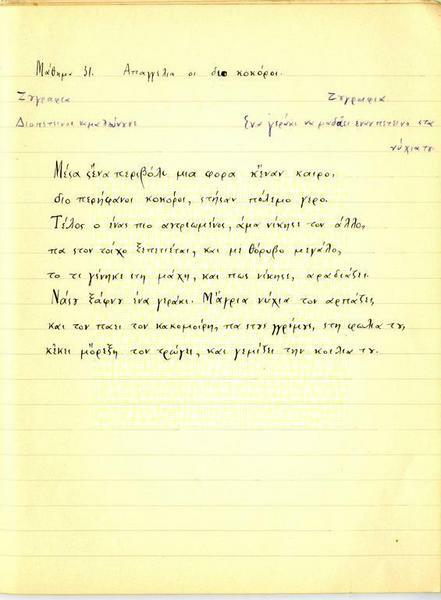 Μάθημα 31. Απαγγελια οι διο κοκόροι.
Ζυγραφια Ζυγραφια
Διοπετεινοι κμαλώνυνε Ενα γεράκι να μαδάει εναν πετεινο στα
νύχια τυ.
Μέσα σένα περιβόλι μια φορα κέναν καιρο,
διο περήφανοι κοκόροι, στήσαν πόλεμο γερο.
Τέλος ο ένας πιο αντριωμένος, άμα νίκησε τον άλλο,
πα στον τοίχο ξεπετιέται, και με θόρυβο μεγάλο,
το τι γένηκε στη μάχη, και πως νίκησε, αραδιάζει.
Νάσυ ξάφνυ ένα γεράκι. Μάγρια νύχια τον αρπάζει,
και τον παει τον κακομοίρη, πα στυς γγρέμυς, στη φωλια τυ,
κέκει μόρεξη τον τρώγει, και γεμίζει την κοιλια τυ.